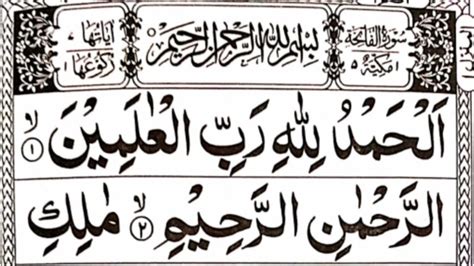 سُوْرَةُ الْفَاتِحَةِ
مَكِّيَّةٌ ٥
بِسْمِ اللّٰهِ الرَّحْمٰنِ الرَّحِيْمِ
اٰيَاتُهَا ٧
رُكُوْعُهَا ١
اَلْحَمْدُ لِلّٰهِ رَبِّ الْعٰلَمِيْنَ ۙ ١
الرَّحْمٰنِ الرَّحِيْمِ ۙ ٢ مٰلِكِ